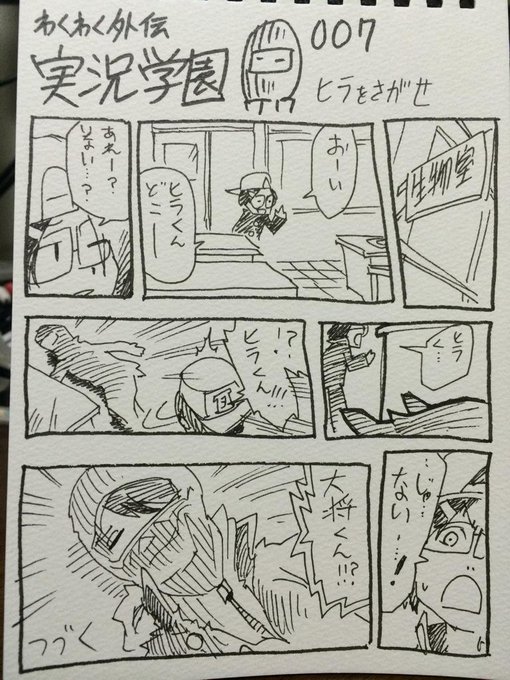 わくわく外伝
実況学園
007
ヒラをさがせ
生物室
おーい
ヒラくん
どこー
あれー?
いない…?
ヒラ
く…
!?
ヒラくん!!!
…じゅ…
ない…!
大将くん!!?
つづく